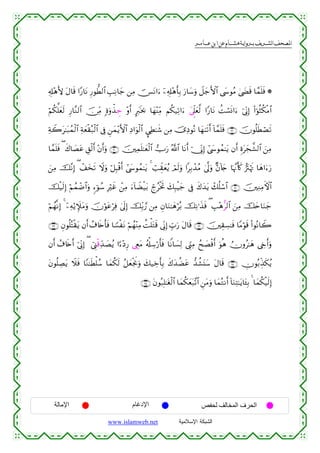 المصحف الشريف برواية هشام عن ابن عامر
۞ فَلَمَّا قَضَىٰ مُوسَى ٱلْأَجَلَ وَسَارَ بِأَهْلِهِۦٓ ءَانَسَ مِن جَانِبِ ٱلطُّورِ نَارًا قَالَ لِأَهْلِهِ
ٱمْكُثُوٓا۟ إِنِّىٓ ءَانَسْتُ نَارًا لَّعَلِّىٓ ءَاتِيكُم مِّنْهَا بِخَبَرٍ أَوْ جِذْوَةٍ مِّنَ ٱلنَّارِ لَعَلَّكُمْ
تَصْطَلُونَ ۝ فَلَمَّآ أَتَىٰهَا نُودِىَ مِن شَٰطِئِ ٱلْوَادِ ٱلْأَيْمَنِ فِى ٱلْبُقْعَةِ ٱلْمُبَٰرَكَةِ
مِنَ ٱلشَّجَرَةِ أَن يَٰمُوسَىٰٓ إِنِّىٓ أَنَا ٱللَّهُ رَبُّ ٱلْعَٰلَمِينَ ۝ وَأَنْ أَلْقِ عَصَاكَ ۖ فَلَمَّا
رَءَاهَا تَهْتَزُّ كَأَنَّهَا جَآنٌّ وَلَّىٰ مُدْبِرًا وَلَمْ يُعَقِّبْ ۚ يَٰمُوسَىٰٓ أَقْبِلْ وَلَا تَخَفْ ۖ إِنَّكَ مِنَ
ٱلْءَامِنِينَ ۝ ٱسْلُكْ يَدَكَ فِى جَيْبِكَ تَخْرُجْ بَيْضَآءَ مِنْ غَيْرِ سُوٓءٍ وَٱضْمُمْ إِلَيْكَ
جَنَاحَكَ مِنَ ٱلرُّهْبِ ۖ فَذَٰنِكَ بُرْهَٰنَانِ مِن رَّبِّكَ إِلَىٰ فِرْعَوْنَ وَمَلَإِي۟هِۦٓ ۚ إِنَّهُمْ
كَانُوا۟ قَوْمًا فَٰسِقِينَ ۝ قَالَ رَبِّ إِنِّى قَتَلْتُ مِنْهُمْ نَفْسًا فَأَخَافُ أَن يَقْتُلُونِ ۝
وَأَخِى هَٰرُونُ هُوَ أَفْصَحُ مِنِّى لِسَانًا فَأَرْسِلْهُ مَعِى رِدْءًا يُصَدِّقْنِىٓ ۖ إِنِّىٓ أَخَافُ أَن
يُكَذِّبُونِ ۝ قَالَ سَنَشُدُّ عَضُدَكَ بِأَخِيكَ وَنَجْعَلُ لَكُمَا سُلْطَٰنًا فَلَا يَصِلُونَ
إِلَيْكُمَا ۚ بِـَٔايَٰتِنَآ أَنتُمَا وَمَنِ ٱتَّبَعَكُمَا ٱلْغَٰلِبُونَ ۝
الحرف المخالف لحفص الإدغام الإمالة
www.islamweb.net الشبكة الإسلامية